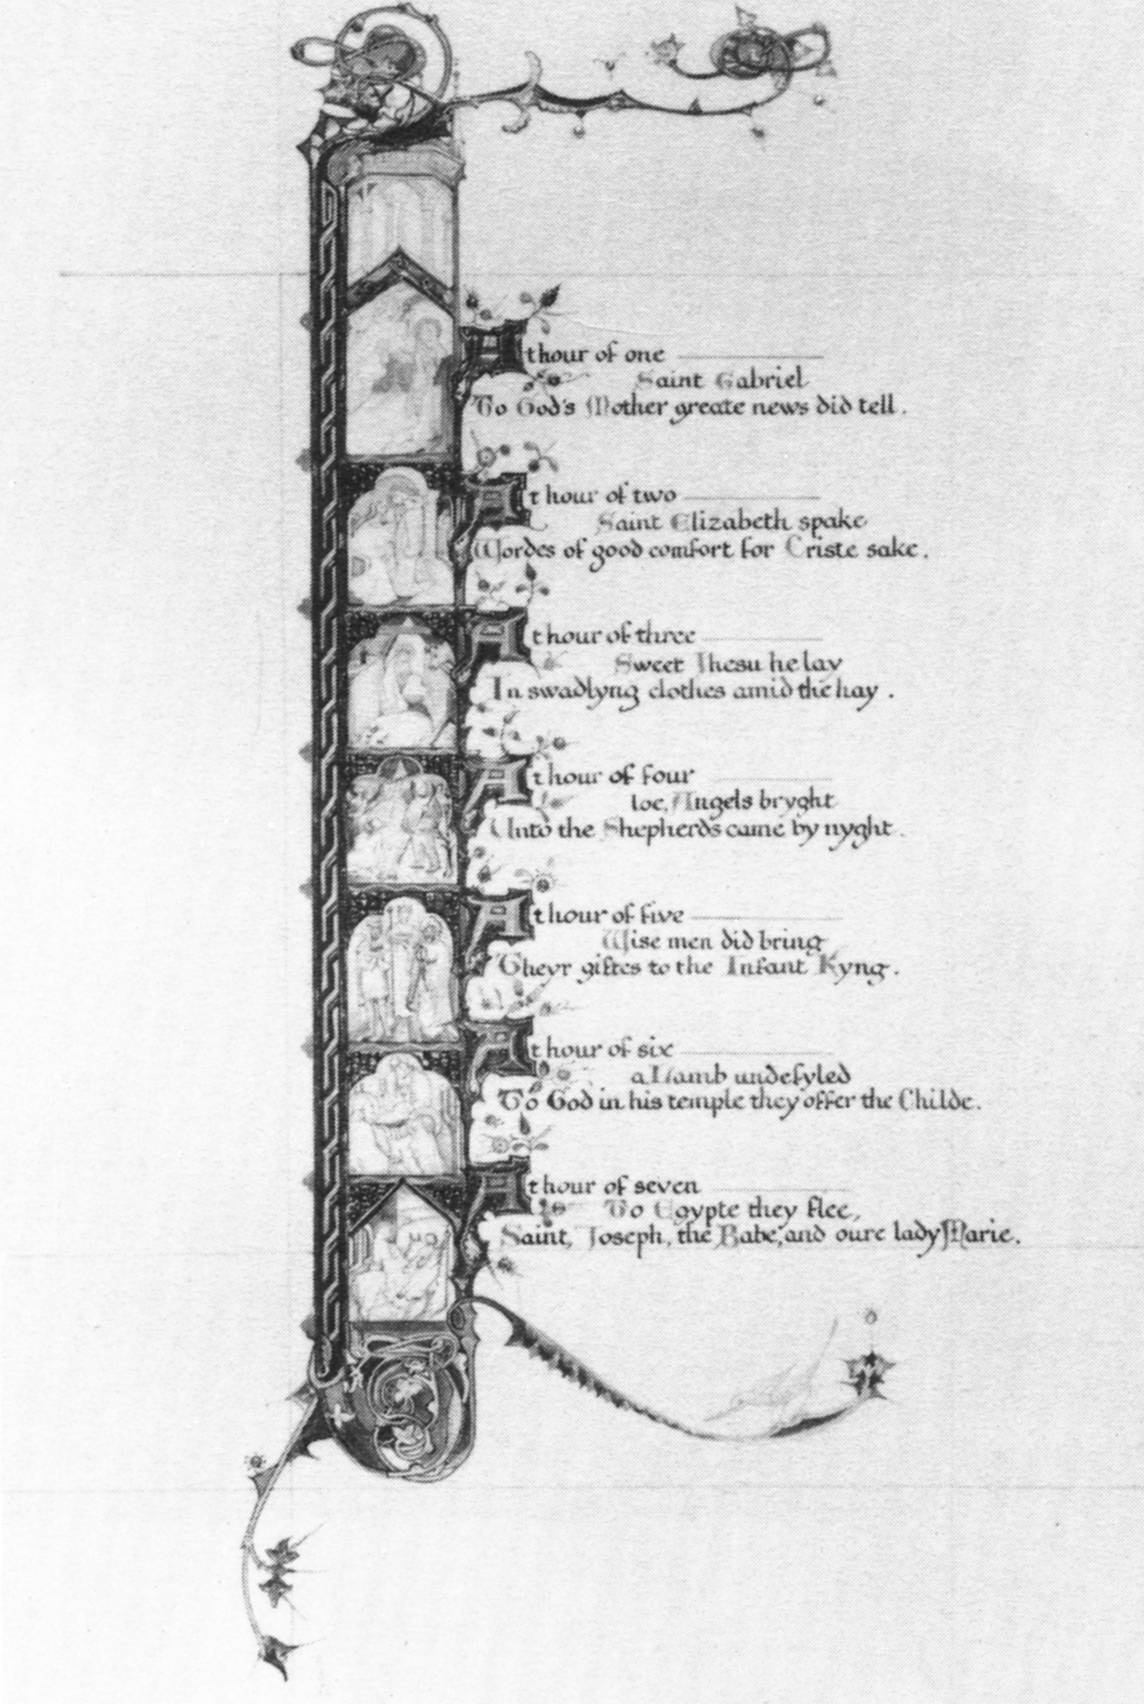 At hour of one
Saint Gabriel
To God's Mother greate news did tell.
At hour of two
Saint Elizabeth spake
Wordes of good comfort for Criste sake.
At hour of three
Sweet Jhesu he lay
In swadlyng clothes amid the hay.
At hour of four
loe, Angels bryght
Unto the Shepherds came by nyght.
At hour of five
Wise men did bring
Theyr giftes to the Infant Kyng.
At hour of six
a Lamb undefyled
To God in his temple they offer the Childe.
At hour of seven
To Egypte they flee,
Saint, Joseph, the Babe, and oure lady Marie.